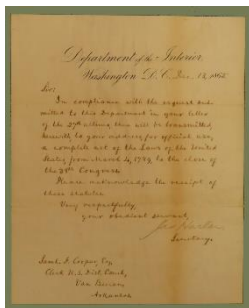 Department of the Interior,
Washington D.C. Dec. 12, 1865
Sir:
In compliance with the request sub-
mitted to this Department in your letter
of the 29th ultimo, there will be transmitted,
herewith to your address, for official use,
a complete set of the Laws of the United
States from March 4, 1789 to the close of
the 38th Congress.
Please acknowledge the receipt
of these statutes
Very respectfully,
your obedient servant,
Jas Harlan
Secretary.
Cooper, Esq
Clerk U.S. Dist. Court,
Van Buren
Arkansas